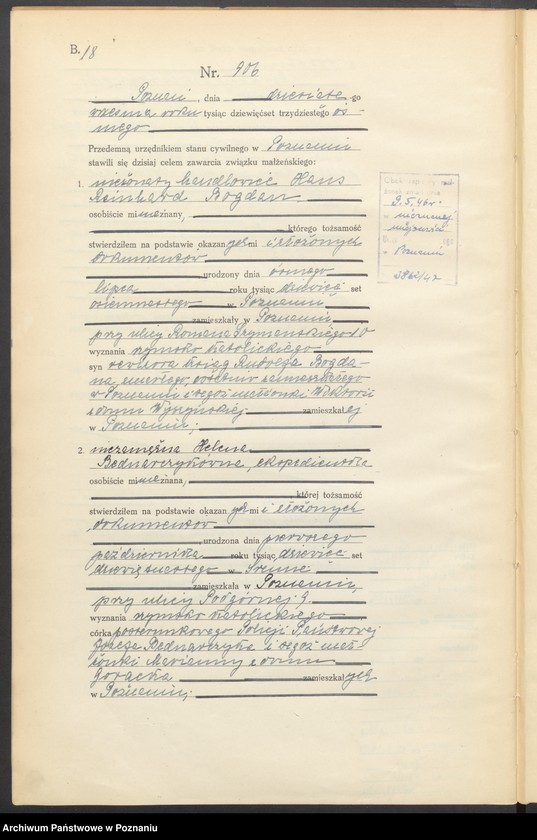 B. 18
Nr. 906
Poznań, dnia dziesiątego
września roku tysiąc dziewięćset trzydziestego ós-
mego
Przedemną urzędnikiem stanu cywilnego w Poznaniu
stawili się dzisiaj celem zawarcia związku małżeńskiego:
1. nieżonaty Hans
Reinhard Bogdan
osobiście mi nieznany,
którego tożsamość
stwierdziłem na podstawie okazanych mi i złożonych
dokumentów
urodzony dnia ósmego
lipca roku tysiąc dziewięć set
osiemnastego w Poznaniu
zamieszkały w Poznaniu,
przy ulicy Romana Szymańskiego 10
wyznania rzymsko katolickiego
syn rewizora ksiąg Rudolfa Bogda-
na, zmarłego, ostatnio zamieszkałego
w Poznaniu i tegoż małżonki Wiktorii
z domu zamieszkałej
w Poznaniu;
2. niezamężna Helena
Bednarczykówna, ekspedientka
osobiście mi nieznana,
której tożsamość
stwierdziłem na podstawie okazanych mi i złożonych
dokumentów
urodzona dnia pierwszego
października roku tysiąc dziewięć set
dziewiętnastego w Śremie
zamieszkała w Poznaniu,
przy ulicy Podgórnej 9
wyznania rzymsko katolickiego
córka posterunkowego Policji Państwowej
Józefa Bednarczyka i tegoż mał-
żonki Marianny z domu
zamieszkałych
w Poznaniu;
9.5.46 r.
w Poznaniu
3862/47
Archiwum Państwowe w Poznaniu